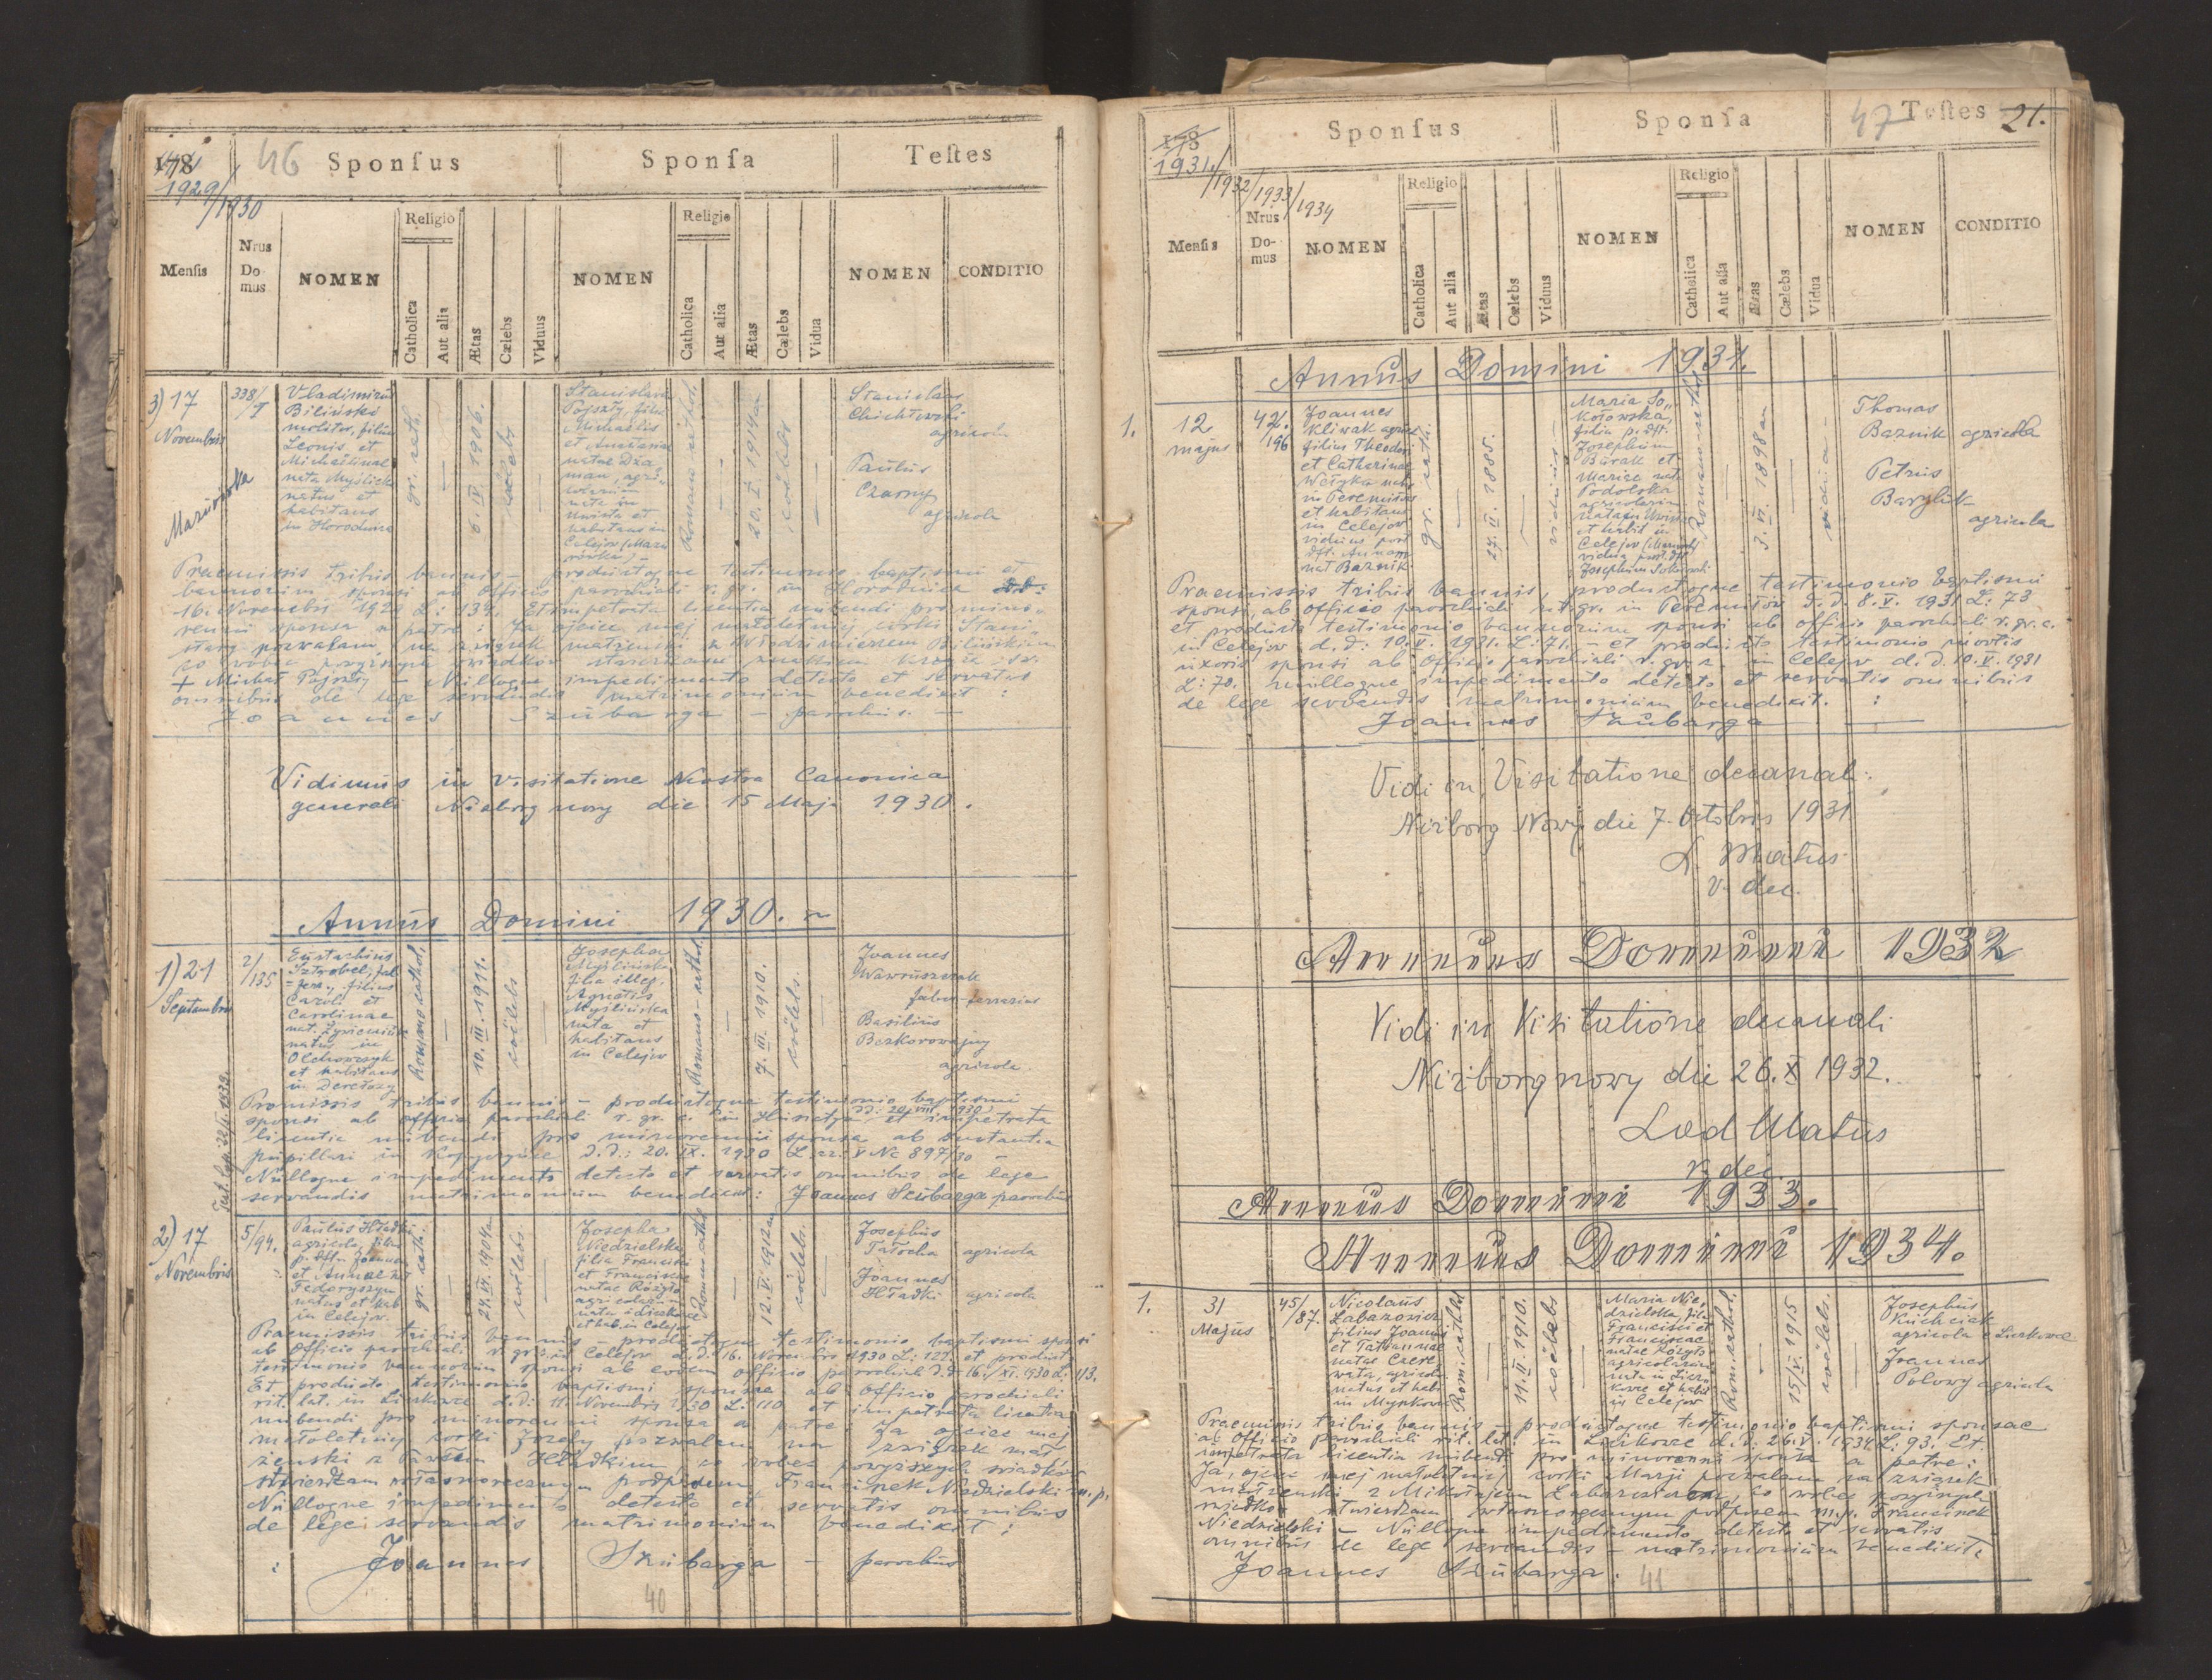 178
1929/1930
46
Sponsus
Sponsa
Testes
Mensis
Nrus Do-mus
NOMEN
Religio
Catholica
Aut alia
Ætas
Cælebs
Viduus
NOMEN
Religio
Catholica
Aut alia
Ætas
Cælebs
Vidua
NOMEN
CONDITIO
3) 17
Novembris
Mazurówka
338/
Vladimirus
Biliński
molitor, filius
Leonis et
Michalinae
nata Myślicka
natus et
habitans
in Horodnica
gr. cath.
6. IV. 1906.
cœlebs
Stanislava
Pajszły, filia
Michaëlis
et Anastasiae
natae Dża-
man, agri-
colarum
nata in
Uwisła et
habitans in
Celejów (Mazu
rówka) -
Romano-cathol.
20. I. 1914
cœlebs
Stanislaus
agricola
Paulus
Czarny
agricola
Praemissis tribus bannis - productoque testimonio baptismi et
bannorum sponsi ab officio parochiali r. gr. in Horodnica
16. Novembris 1929 L: 139. Et impetrata licentia nubendi pro mino-
renni sponsa a patre: Ja ojciec mej małoletniej córki Stani-
sławy pozwalam na związek małżeński z Włodzimierzem Bilińskim
co wobec powyższych świadków stwierdzam znakiem krzyża św.
+ Michał Pajszły - Nulloque impedimento detecto et servatis
omnibus de lege servandis matrimonium benedixit:
Joannes Szubarga - parochus. -
Vidimus in visitatione Nostra Canonica
generali Niżborg nowy die 15 Maji 1930.
Annus Domini 1930.
1) 21
Septembris
2/135
Eustachius
Sztrobel, fab-
-ferr., filius
Caroli et
Carolinae
nat.
natus in
Olchowczyk
et habitans
in Derełozy
Romano cathol.
10. III. 1911.
cœlebs
Josepha
Myślińska
filia illeg.
Agnetis
Myślińska
nata et
habitans
in Celejów
Romano-cathol.
7. III. 1910.
cœlebs
Joannes
Wawruszczak
faber-ferrarius
Basilius
Bezkorowajny
agricola.
Praemissis tribus bannis - productoque testimonio baptismi
sponsi ab officio parochiali r. gr. c. in d.d: 20. VIII. 1930 et impetrata
licentia nubendi pro minorenni sponsa ab instantia
pupillari in Kopyczyńce d.d.: 20. IX. 1930 L. cz. V Nc 897/30 -
Nulloque impedimento detecto et servatis omnibus de lege
servandis matrimonium benedixit: Joannes Szubarga parochus
2) 17
Novembris
5/94.
Paulus Hładki
agricola, filius
p. dft. Joannis
et Annae nat
Fedoryszyn
natus et hab.
in Celejów.
gr. cath.
24. VI. 1904
cœlebs
Josepha
Niedzielska
filia Francisci
et Franciscae
natae Rożyło
agricolarum
nata in Liczkowce
et hab. in Celejów
Romano cathol
12. VI. 1912
cœlebs.
Josephus
Tatocha agricola
Joannes
Hładki agricola
Praemissis tribus bannis - productoque testimonio baptismi sponsi
ab Officio parochiali r. gr. c. in Celejów d.d. 16. Novembris 1930 L: 121. et producto
testimonio bannorum sponsi ab eodem officio parochiali d.d. 16/XI. 1930 L: 113.
Et producto testimonio baptismi sponsae ab Officio parochiali
rit. lat. in Liczkowce d.d: 11 Novembris 1930 L: 110 et impetrata licentia
nubendi pro minorenni sponsa a patre: Ja ojciec mej
małoletniej córki Józefy pozwalam na związek mał-
żeński z Pawłem Hładkim, co wobec powyższych świadków
stwierdzam własnoręcznym podpisem. Franciszek Niedzielski m.p.
Nulloque impedimento detecto et servatis omnibus
de lege servandis matrimonium benedixit:
Joannes Szubarga - parochus
40
178
1931./1932/1933/1934
Sponsus
Sponsa
47
Testes
21.
Mensis
Nrus Do-mus
NOMEN
Religio
Catholica
Aut alia
Ætas
Cælebs
Viduus
NOMEN
Religio
Catholica
Aut alia
Ætas
Cælebs
Vidua
NOMEN
CONDITIO
Annus Domini 1931.
1.
12
majus
42./196
Joannes
Kliwak agric.
filius Theodori
et Catharinae
Wełyka natus
in Peremiłów
et habitans
in Celejów
viduus post
dft. Annam
nat Baznik
gr. cath.
27. II. 1885.
viduus
Maria So-
kołowska,
filia p. dft.
Josephum
Burak et
Mariae nata
Podolska
agricolarum
nata in Uwisła
et habit in
Celejów (Mazurówka)
vidua post. dft.
Josephum Sokołowski
Romano cathol
3. VI. 1898
vidua
Thomas
Baznik agricola
Petrus
Barylik
agricola
Praemissis tribus bannis, productoque testimonio baptismi
sponsi ab officio parochiali rit. gr. in Peremiłów d.d. 8. V. 1931 L: 73
et producto testimonio bannorum sponsi ab officio parochiali r. gr. c.
in Celejów d.d: 10. V. 1931. L: 71. - et producto testimonio mortis
uxoris sponsi ab officio parochiali r. gr. c. in Celejów d.d. 10. V. 1931
L: 70. nulloque impedimento detecto et servatis omnibus
de lege servandis matrimonium benedixit. :
Joannes Szubarga
Vidi in Visitatione decanali
Niżborg Nowy die 7. Octobris 1931
L. Matus
v. dec.
Annus Domini 1932
Vidi in Visitatione decanali
Niżborg nowy die 26. X 1932.
Lud Matus
v. dec.
Annus Domini 1933.
Annus Domini 1934.
1.
31
Majus
45/87.
Nicolaus
Łabazowicz
filius Joannis
et Tatiannae
natae Czere
wata, agricola
natus et hab.
in Myszkowce
Rom. cathol
11. II. 1910.
cœlebs
Maria Nie-
dzielska, filia
Francisci et
Franciscae
natae Rożyło
agricolarum
nata in Licz-
kowce et habit
in Celejów
Rom. cathol.
15/V. 1915
cœlebs.
Josephus
Kuchciak
agricola e Liczkowce
Joannes
Polowy agricola
Praemissis tribus bannis - productoque testimonio baptismi sponsae
ab Officio parochiali rit. lat. in Liczkowce d.d. 26. V. 1934 L: 93. Et
impetrata licentia nubendi pro minorenni sponsa a patre:
Ja, ojciec mej małoletniej córki Marji pozwalam na związek
małżeński z Mikołajem Łabazowiczem, co wobec powyższych
świadków stwierdzam własnoręcznym podpisem m.p. Franciszek
Niedzielski - Nulloque impedimento detecto et servatis
omnibus de lege servandis - matrimonium benedixit:
Joannes Szubarga.
41